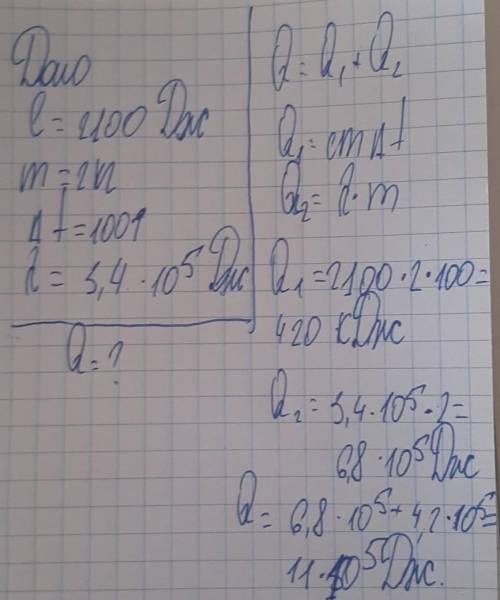 Дано
C = 2100 Дж
m = 2л
Δt = 100
λ = 3,4 · 10⁵ Дж
Q = ?
Q = Q₁ + Q₂
Q₁ = cmΔt
Q₂ = λ · m
Q₁ = 2100 · 2 · 100 =
420 кДж
Q₂ = 3,4 · 10⁵ · 2 =
6,8 · 10⁵ Дж
Q = 6,8 · 10⁵ + 4,2 · 10⁵ =
11 · 10⁵ Дж.